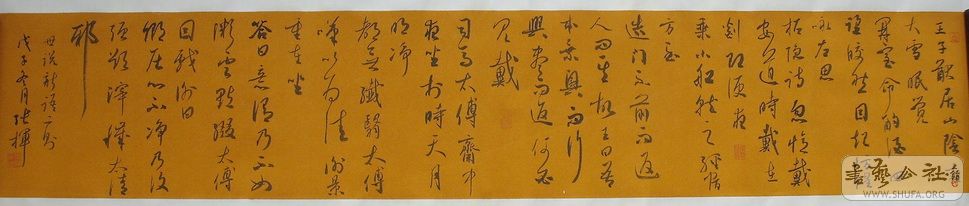 王子猷居山陰
大雪眠覺
開室命酌酒
望皎然因起
詠左思
招隱詩忽憶戴
安道時戴在
剡即便夜
乘小船就之經宿
方至
造門不前而返
人問其故王曰吾
本乘興而行
興盡而返何必
見戴
司馬太傅齋中
夜坐於時天月
明淨
都無纖翳太傅
嘆以為佳謝景
重在坐
答曰意謂乃不如
微雲點綴太傅
因戲謝曰
卿居心不淨乃復
強欲滓穢太清
邪
世說新語二則
戊子冬月張輝
書藝公社
WWW.SHUFA.ORG